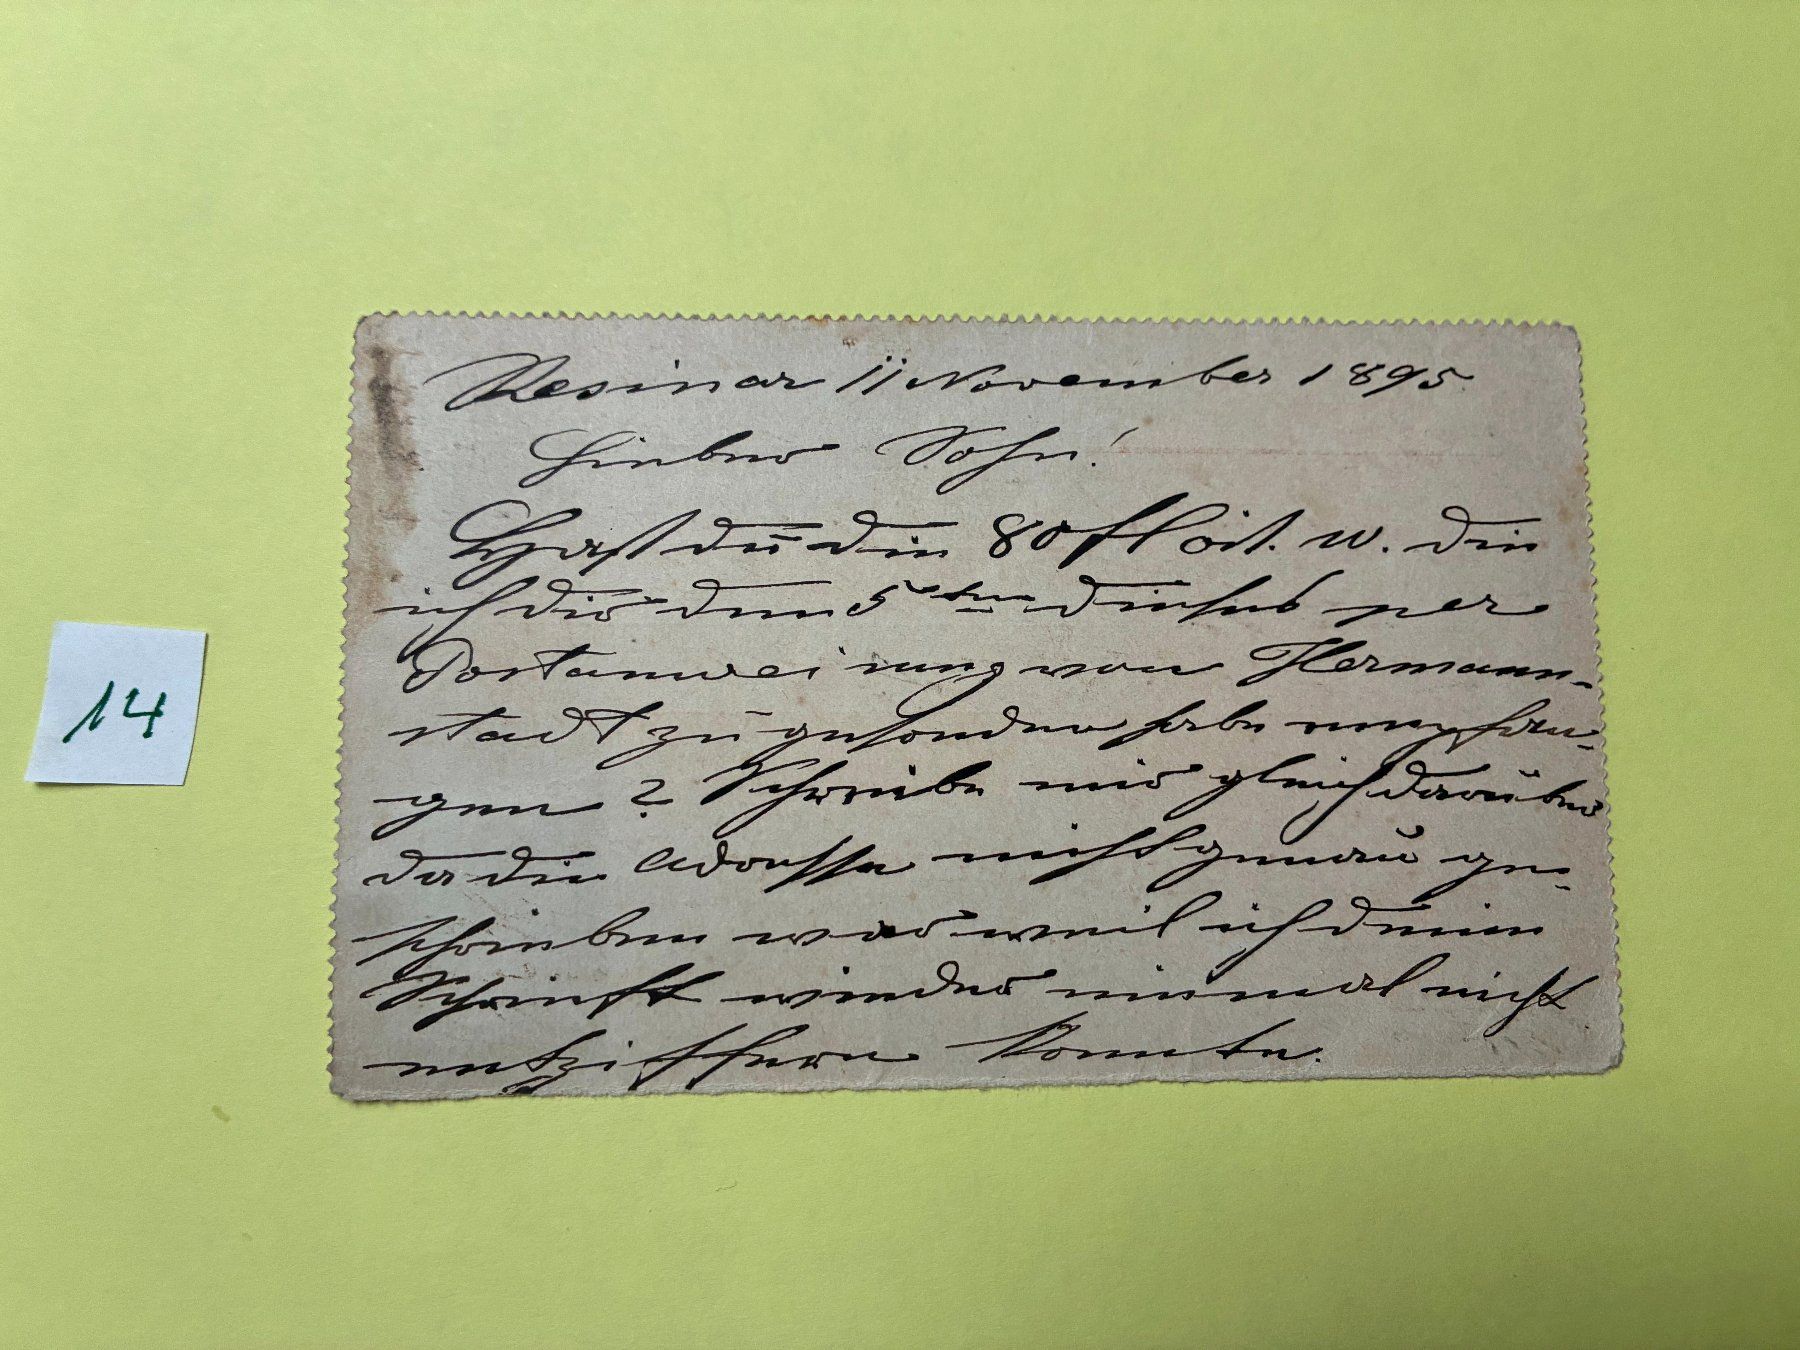 Resinar 11 November 1895
Lieber Sohn!
Hast du die 80 fl öst. w. die
ich dir den 5ten dieses per
Postanweisung von Hermann-
stadt zu gesendet habe empfan-
gen? Schreibe mir gleich darüber
da die Adresse nicht genau ge-
schrieben war weil ich deine
Schrift wieder einmal nicht
entziffern konnte.
14